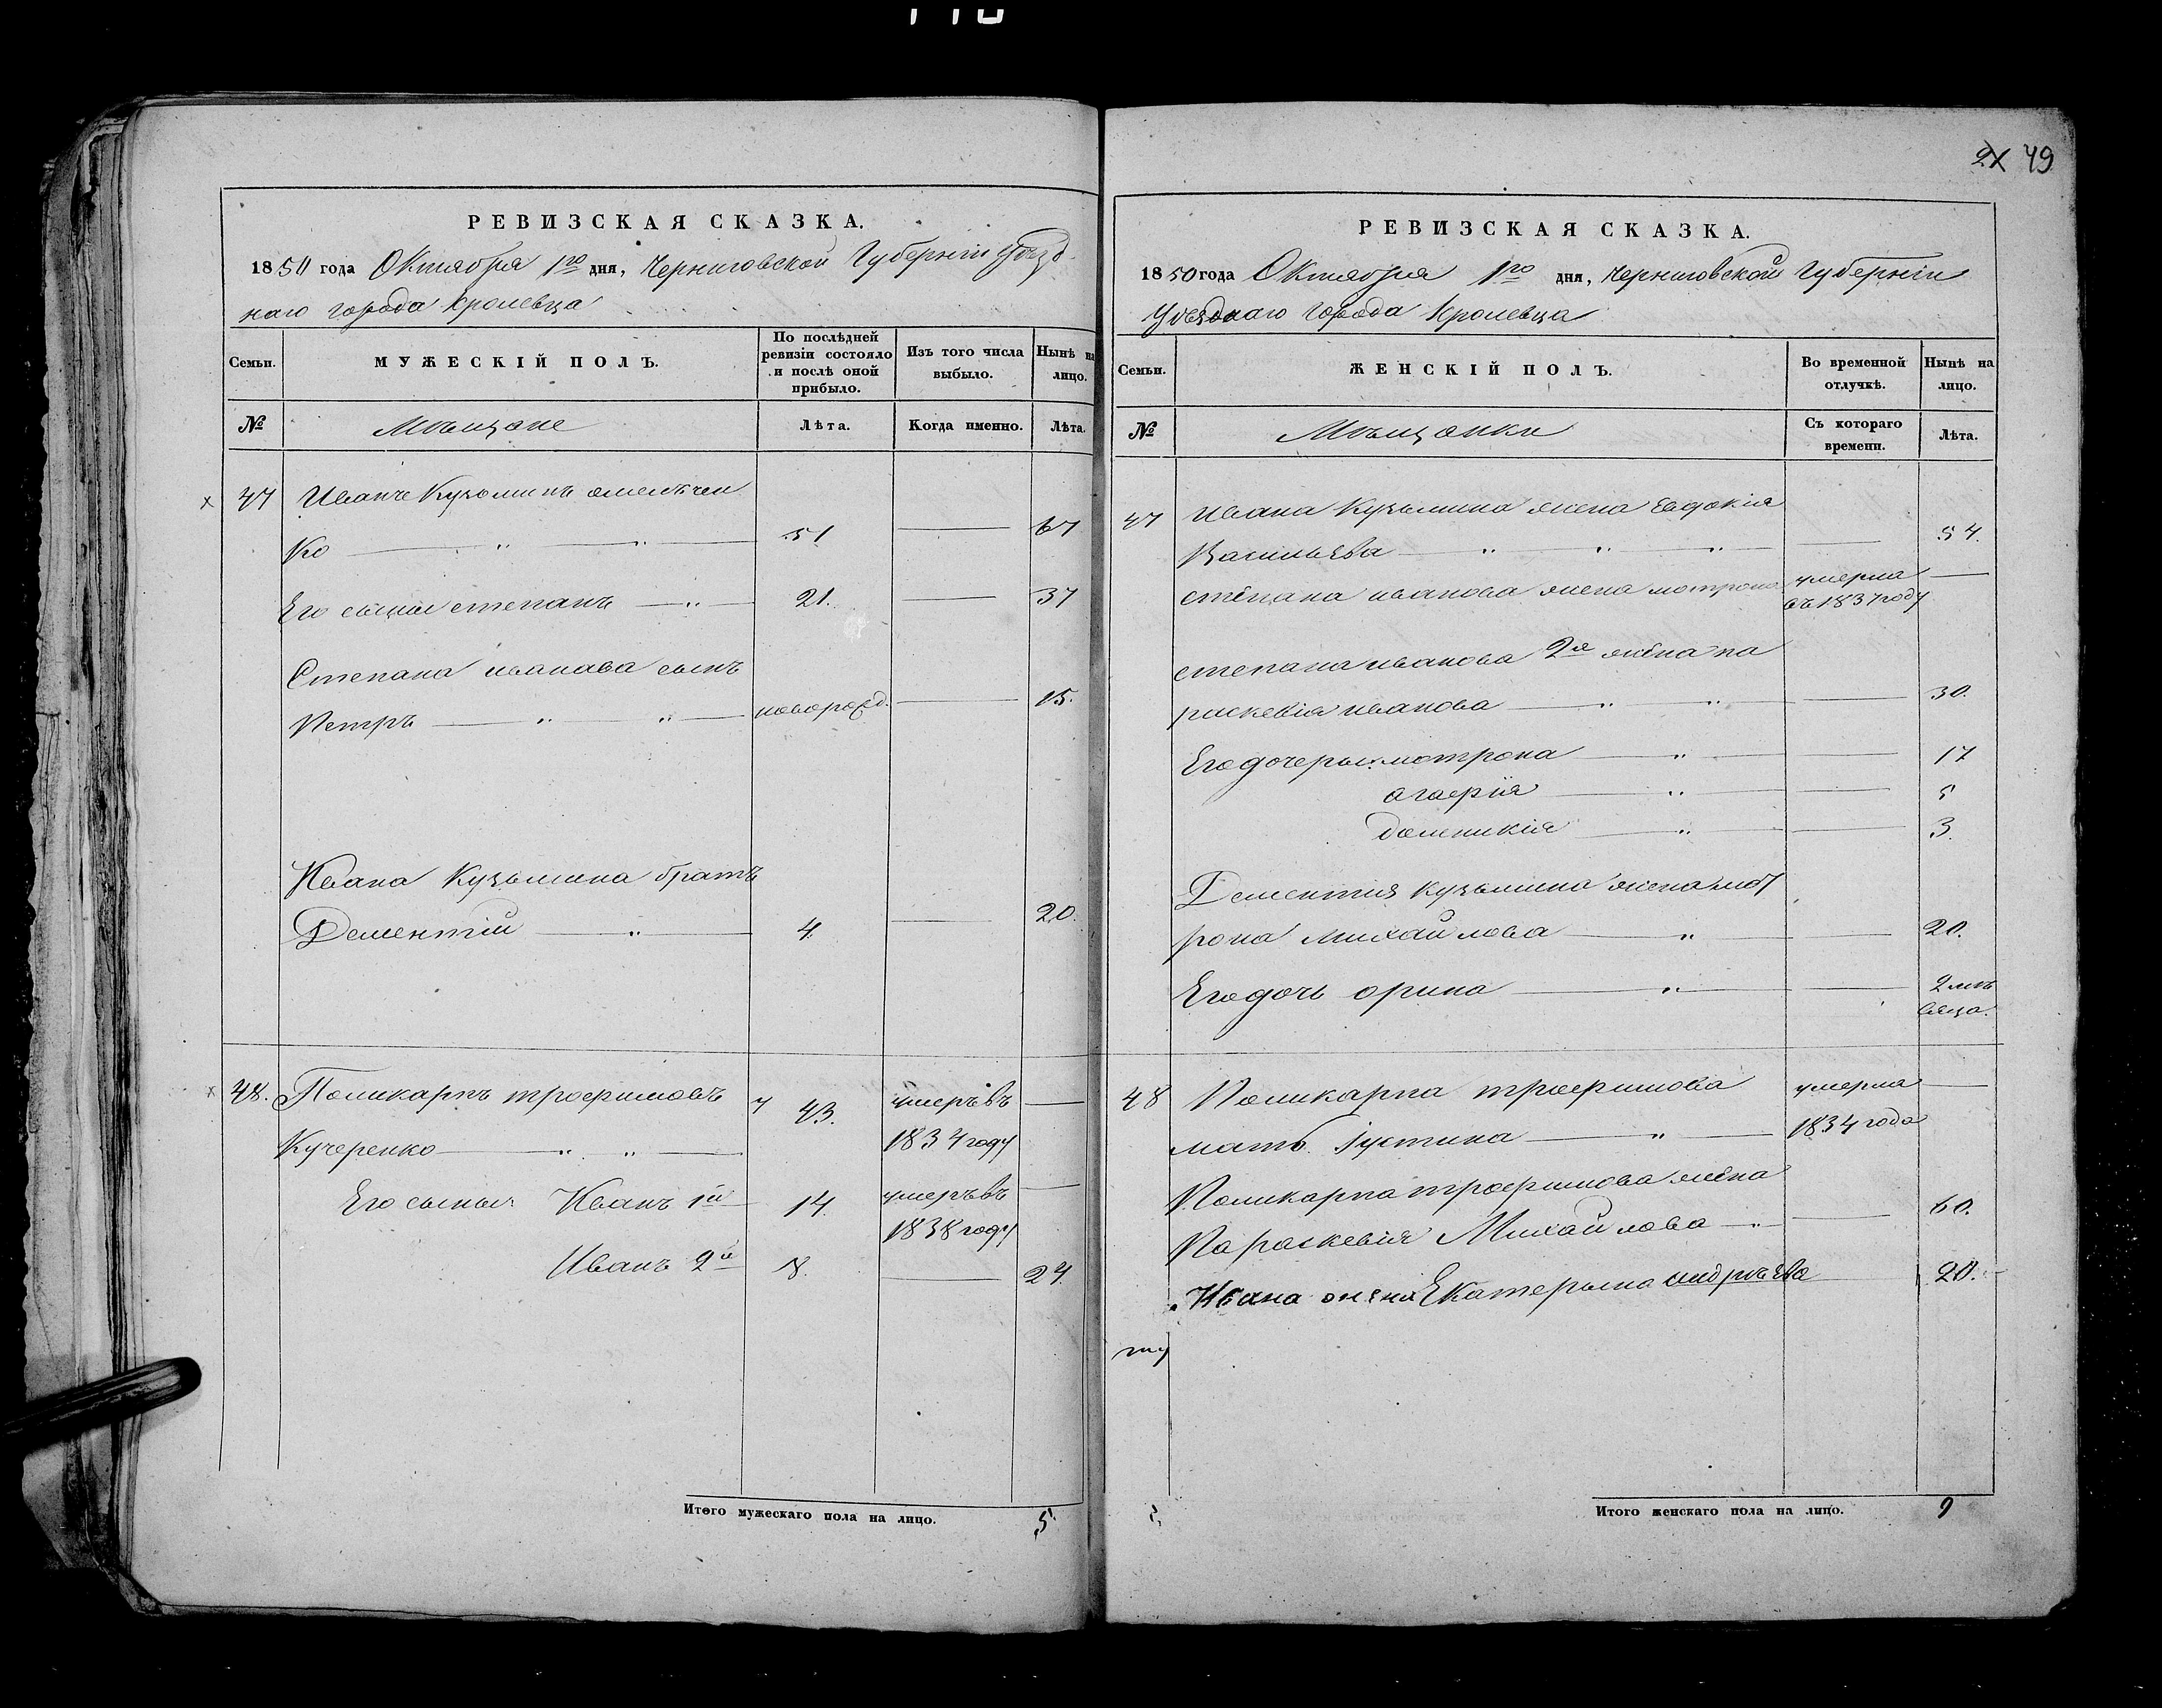 2X 49
РЕВИЗСКАЯ СКАЗКА.
1850 года Октября 1го дня, Черниговской Губерніи Уѣзд
наго города Кролевца
Семьи. МУЖЕСКІЙ ПОЛЪ. По послѣдней ревизіи состояло и послѣ оной прибыло. Изъ того числа выбыло. Нынѣ на лицо.
№ Мѣщане Лѣта. Когда именно. Лѣта.
х 47 Иванъ Кузьминъ емельчен
ко 51 67
Его сыны степанъ 21. 37
Степана иванова сынъ
Петръ новорожд. 15.
Ивана Кузьмина братъ
Дементій 4 20.
х 48. Поликарпъ трофимовъ 43. умеръ въ
Кучеренко 1834 году
Его сыны: Иванъ 1й 14. умеръ въ
1838 году
Иванъ 2й 8. 24.
Итого мужескаго пола на лицо. 5
РЕВИЗСКАЯ СКАЗКА.
1850 года Октября 1го дня, Черниговской Губерніи
Уѣзднаго города Кролевца
Семьи. ЖЕНСКІЙ ПОЛЪ. Во временной отлучкѣ. Нынѣ на лицо.
№ Мѣщанки Съ котораго времени. Лѣта.
47 Ивана Кузьмина жена Евдокія
Васильева 54.
степана иванова жена мотрона умерла
въ 1837 году
степана иванова 2я жена па
раскевія иванова 30.
Его дочеры: мотрона 17
агафія 5
доменикія 3.
Дементия кузьмина жена мот
рона Михайлова 20.
Его дочь орина 2 мѣ
сяца.
48 Поликарпа трофимова умерла
мать Іустина 1834 года
Поликарпа трофимова жена
Параскевія Михайлова 60.
Ивана жена Екатерына андрѣева 20.
Итого женскаго пола на лицо. 9